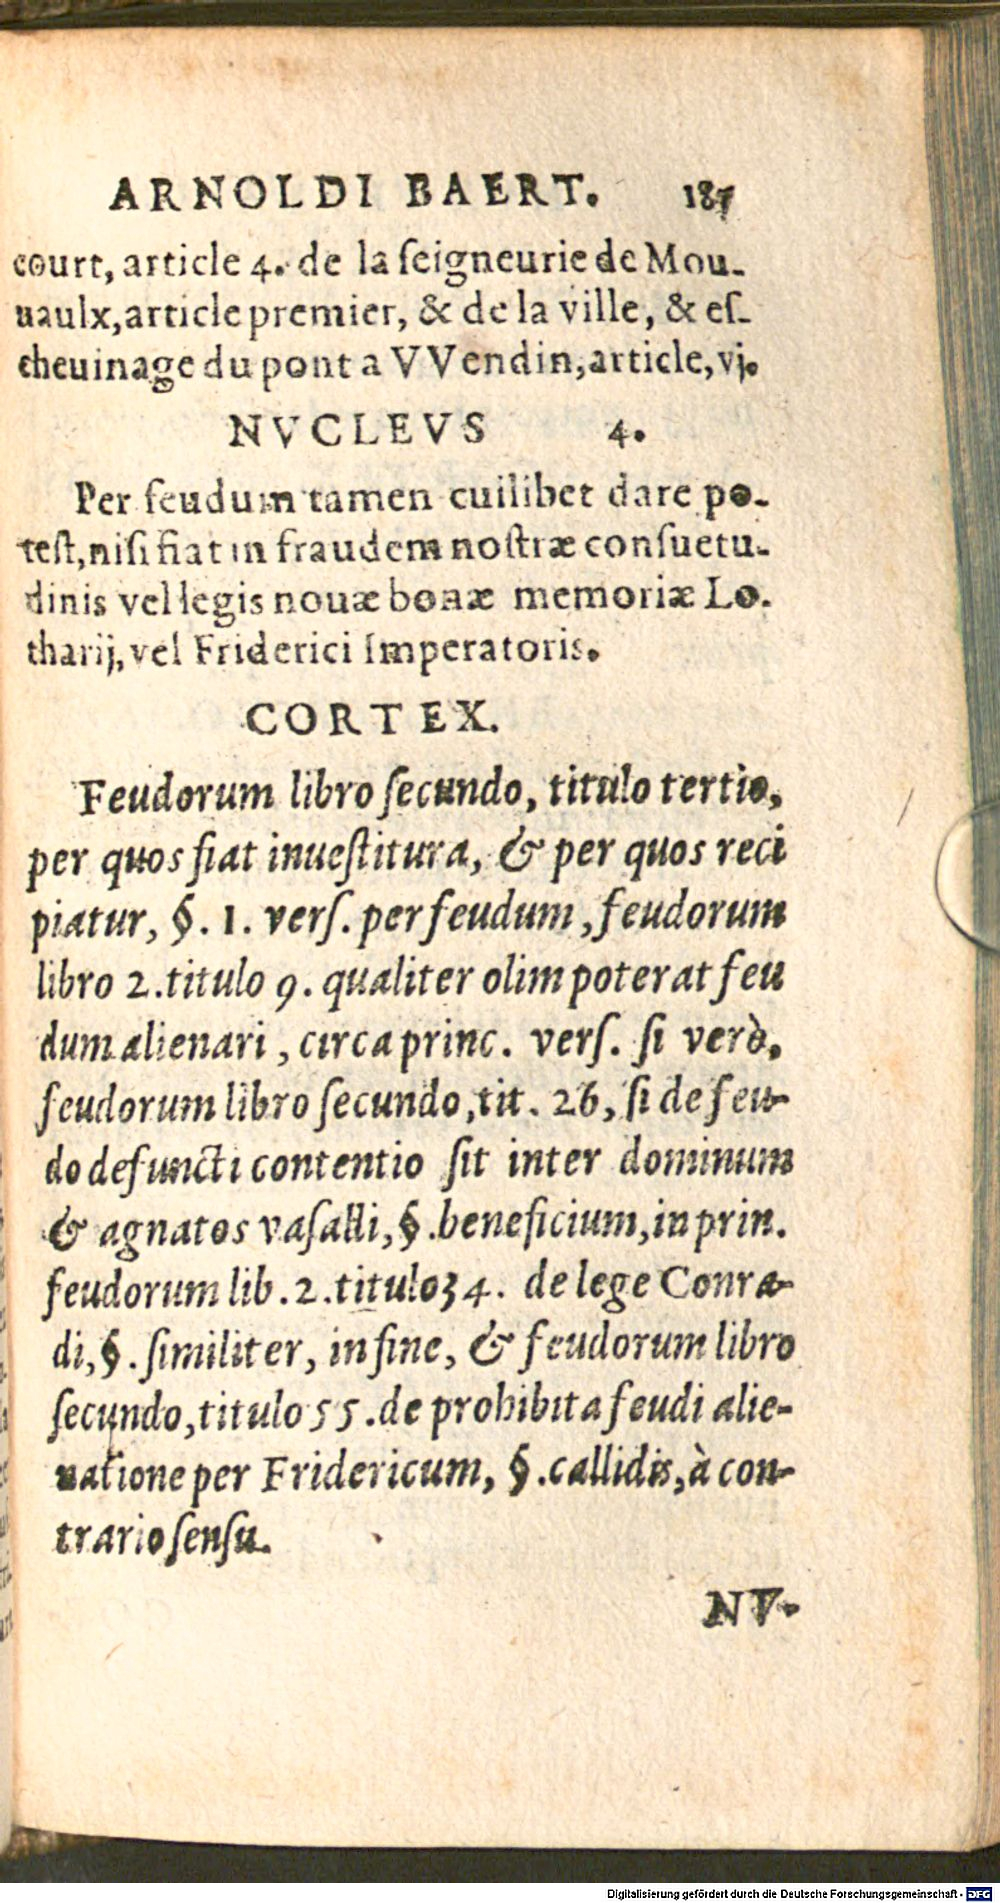 ARNOLDI BAERT. 187
court, article 4. de la ſeigneurie de Mou-
uaulx, article premier, & de la ville, & eſ-
cheuinage du pont a VVendin, article, vj.
NVCLEVS 4.
Per feudum tamen cuilibet dare po-
teſt, niſi fiat in fraudem noſtræ conſuetu-
dinis vel legis nouæ bonæ memoriæ Lo-
tharij, vel Friderici Imperatoris.
CORTEX.
Feudorum libro ſecundo, titulo tertio,
per quos fiat inueſtitura, & per quos reci
piatur, §. 1. verſ. per feudum, feudorum
libro 2. titulo 9. qualiter olim poterat feu
dum alienari, circa princ. verſ. ſi verò,
feudorum libro ſecundo, tit. 26, ſi de feu-
do defuncti contentio ſit inter dominum
& agnatos vaſalli, §. beneficium, in prin.
feudorum lib. 2. titulo 34. de lege Conra-
di, §. ſimiliter, in fine, & feudorum libro
ſecundo, titulo 55. de prohibita feudi alie-
natione per Fridericum, §. callidis, à con-
trario ſenſu.
NV-
Digitalisierung gefördert durch die Deutsche Forschungsgemeinschaft - DFG